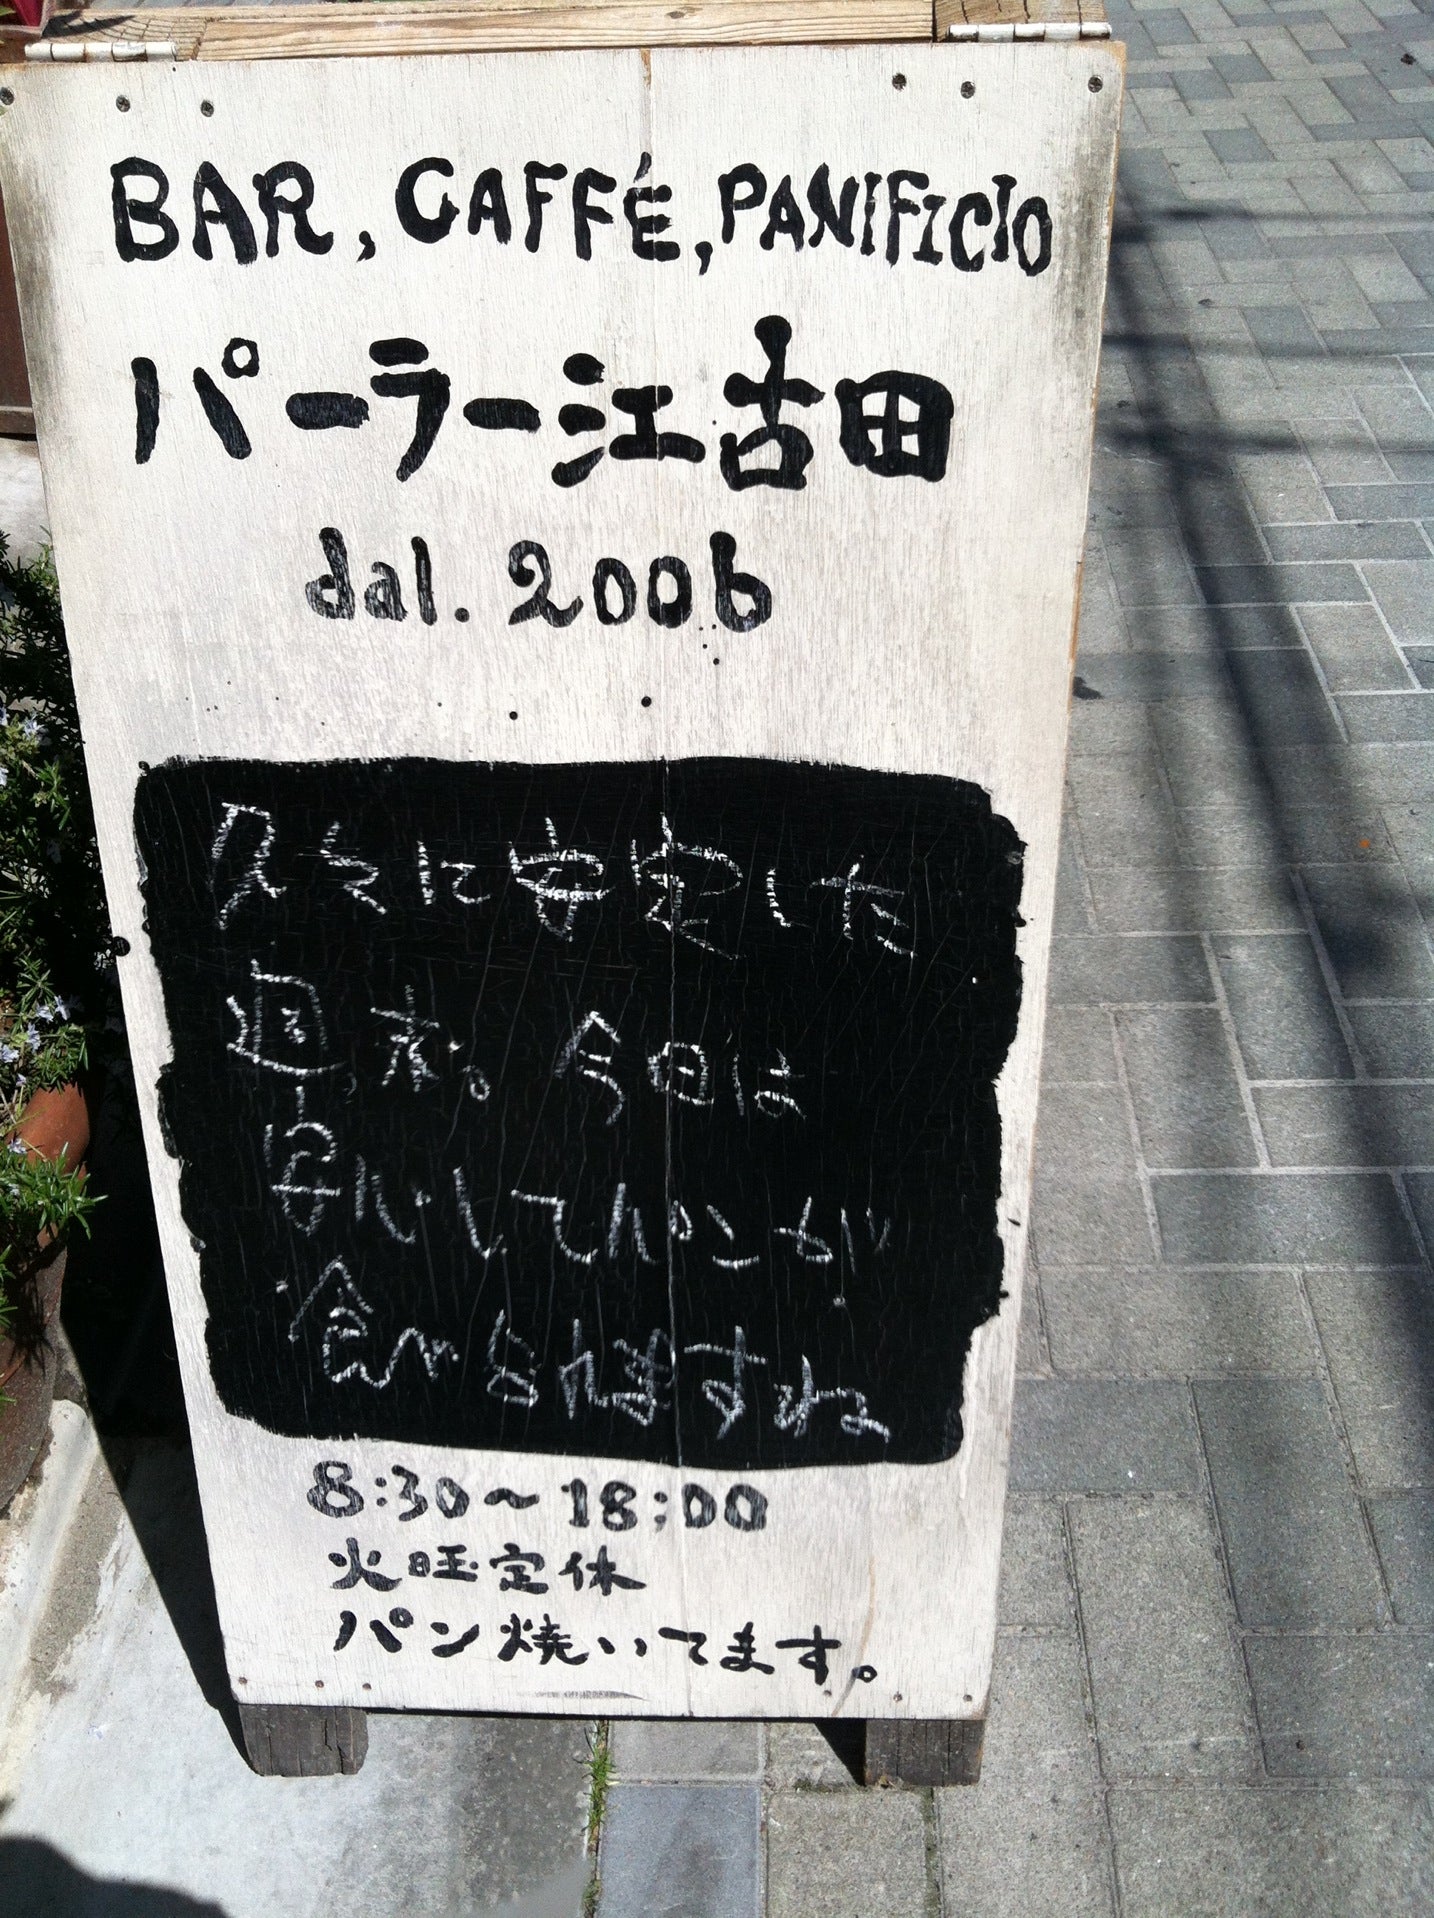 BAR, CAFFÉ, PANIFICIO
パーラー江古田
dal. 2006
久々に安定した
週末。今日は
安心してパンが
食べられますね
8:30〜18:00
火曜定休
パン焼いてます。